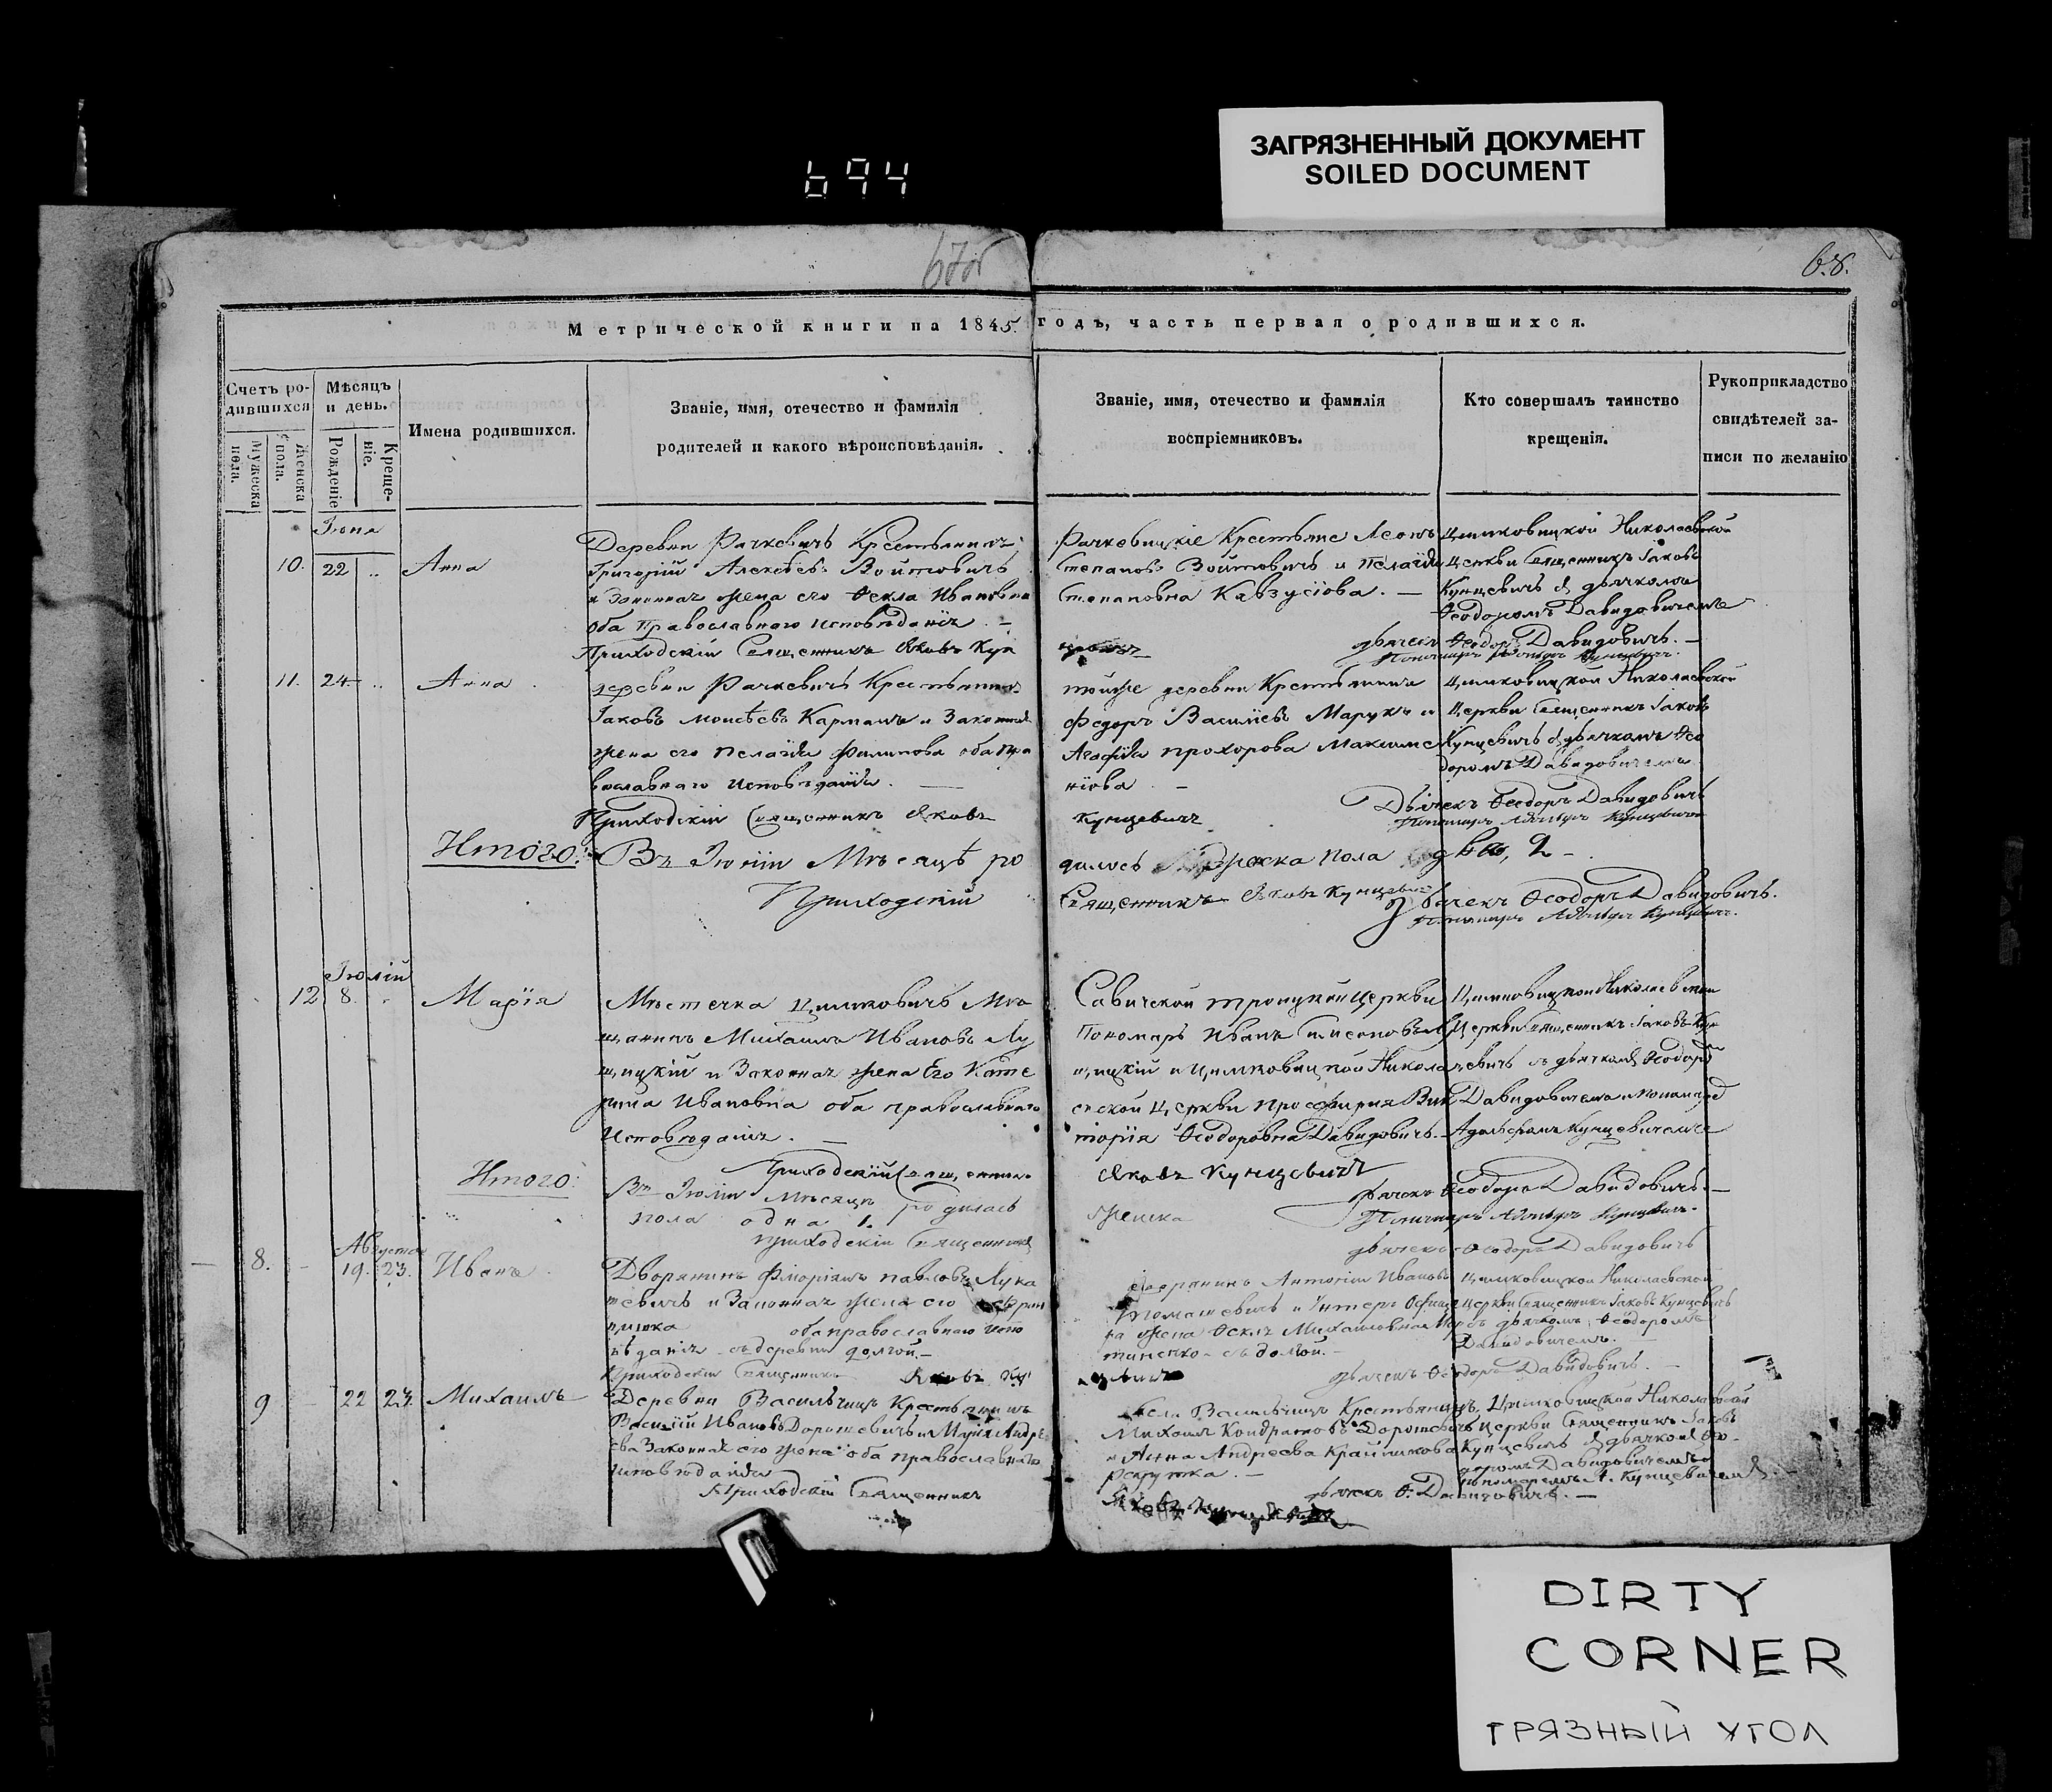 694
ЗАГРЯЗНЕННЫЙ ДОКУМЕНТ
SOILED DOCUMENT
67об
68.
Метрической книги на 1845. годъ, часть первая о родившихся.
Счетъ ро-
дившихся
Мужеска пола.
Женска пола.
Мѣсяцъ
и день.
Рожденіе
Креще-
ніе.
Имена родившихся.
Званіе, имя, отечество и фамилія
родителей и какого вѣроисповѣданія.
Званіе, имя, отечество и фамилія
воспріемниковъ.
Кто совершалъ таинство
крещенія.
Рукоприкладство
свидѣтелей за-
писи по желанію
Іюня
10. 22 Анна
Деревни Рачкевичь Крестьянинъ
Григорій Алексѣевъ Войтовичь
и Законная жена его Ѳекла Ивановна
оба Православнаго исповѣданія. —
Приходскій Священникъ Яковъ Кун
Рачкевицкіе Крестьяне Леонъ
Степановъ Войтовичь и Пелагія
Степановна Кавзусіова. —
Цимковицкой Николаевской
Церкви Священникъ Іаковъ
Кунцевичь съ дьячкомъ
Ѳеодоромъ Давидовичемъ
дьячекъ Ѳеодоръ Давидовичь. —
Пономарь Адольфъ Кунцевичь.
11. 24. Анна
деревни Рачкевичь Крестьянинъ
Іаковъ Моисѣевъ Карпашъ и Законная
жена его Пелагія Филипова оба пра
вославнаго исповѣданія. —
Приходскій Священникъ Яковъ
тойже деревни Крестьянинъ
Федоръ Василіевъ Марукъ и
Агафія Прохорова Максиме
ніова. —
Кунцевичъ
Цимковицкой Николаевской
Церкви Священникъ Іаковъ
Кунцевичь съ дьячкомъ Ѳео
доромъ Давидовичемъ
Дьячекъ Ѳеодоръ Давидовичь
Пономарь Адольфъ Кунцевичь
Итого: Въ Іюніи Мѣсяцѣ ро
дилось женска пола двѣ, 2 —.
Приходскій
Священникъ Яковъ Кунцевичъ
дьячекъ Ѳеодоръ Давидовичь.
Пономарь Адольфъ Кунцевичь.
Іюлій
12 8. Марія
Мѣстечка Цимковичь Мѣ
щанинъ Михаилъ Ивановъ Лу
щицкій и Законная жена Его Кате
рина Ивановна оба православнаго
исповѣданія. —
Савичской Троицкой Церкви
Пономарь Иванъ
щицкій и Цимковицкой Никола
евской Церкви Просфирня Вик
торія Ѳеодоровна Давидовичь.
Цимковицкой Николаевской
Церкви Священникъ Іаковъ Кун
цевичь съ дьячкомъ Ѳеодоро
Давидовичемъ и пономаре
Адольфомъ Кунцевичемъ
Приходскій Священникъ
Яковъ Кунцевичъ
Итого: Въ Іюліи Мѣсяцѣ родилась
женска
пола одна 1.
дьячекъ Ѳеодоръ Давидовичь. —
Пономарь Адольфъ Кунцевичь.
приходскій Священникъ
дьячекъ Ѳеодоръ Давидовичь
Августа
8. 19. 23. Иванъ
Дворянинъ Флоріянъ Павловъ Лука
шевичь и Законная жена его
оба православнаго испо
вѣданія съ деревни долгой. —
Приходскій Священникъ Яковъ Ку
Дворянинъ Антоній Ивановъ
Томашевичь и Унтеръ Офице
ра жена Ѳекла Михайловна
съ долгой. —
Цимковицкой Николаевской
церкви Священникъ Іаковъ Кунцевичь
съ дьячкомъ Ѳеодоромъ
Давидовичемъ.
дьячекъ Ѳеодоръ Давидовичь. —
9 22 23. Михаилъ
Деревни Васильчицъ Крестьянинъ
Василій Ивановъ Дорошевичь и Марія Андре
ева Законная его жена оба православнаго
исповѣданія
Приходскій Священникъ
Васильчицъ Крестьянинъ
Михаилъ Кондратовъ Дорошевичь
и Анна Андреева Крайникова
рекрутка. —
Цимковицкой Николаевской
церкви Священникъ Іаковъ
Кунцевичь съ дьячкомъ Ѳео-
доромъ Давидовичемъ и
пономаремъ А. Кунцевичемъ. —
дьячекъ Ѳ. Давидовичь. —
DIRTY
CORNER
ГРЯЗНЫЙ УГОЛ